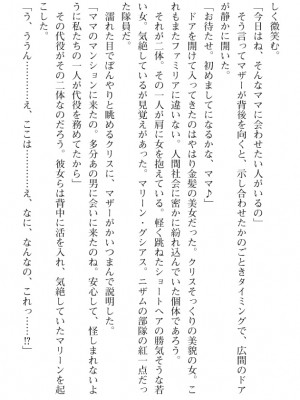 しく微笑む。
「今日はね、そんなママに会わせたい人がいるの」
そう言ってマザーが背後を向くと、示し合わせたかのごときタイミングで、広間のドア
が静かに開いた。
「お待たせ。初めましてになるかな、ママ♪」
ドアを開けて入ってきたのはやはり金髪の美女だった。クリスそっくりの美貌の女。こ
れもまたファミリアに違いない。人間社会に密かに紛れ込んでいた個体であろう。
それが二体。その一人が肩に女を抱えている。軽く跳ねたショートヘアの勝気そうな若
い女。気絶しているが見覚えがあった。マリーン・グシアス。ニザムの部隊の紅一点だっ
た隊員だ。
濡れた目でぼんやりと眺めるクリスに、マザーがかいつまんで説明した。
「ママのマンションに来たの。多分あの男に会いに来たのね。安心して、怪しまれないよ
うに私たちの一人が代役を務めてたから」
その代役がその二体なのだろう。彼女らは背中に活を入れ、気絶していたマリーンを起
こした。
「う、ううん……え、ここは……え、なに、なんなの、これっ……!?」